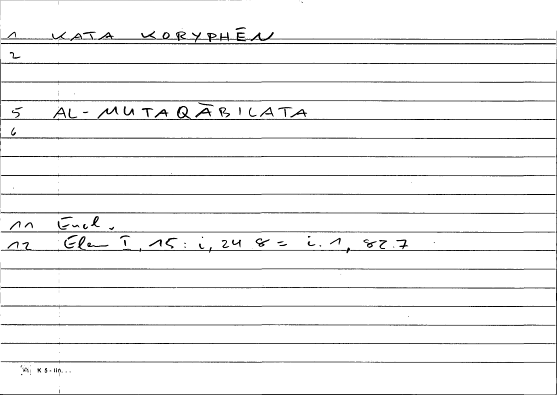 1 KATA KORYPHĒN
2
5 AL-MUTAQĀBILATA
6
11 Eucl.
12 Elem I, 15: i, 24 8 = i. 1, 82.7
K 5 - 110...